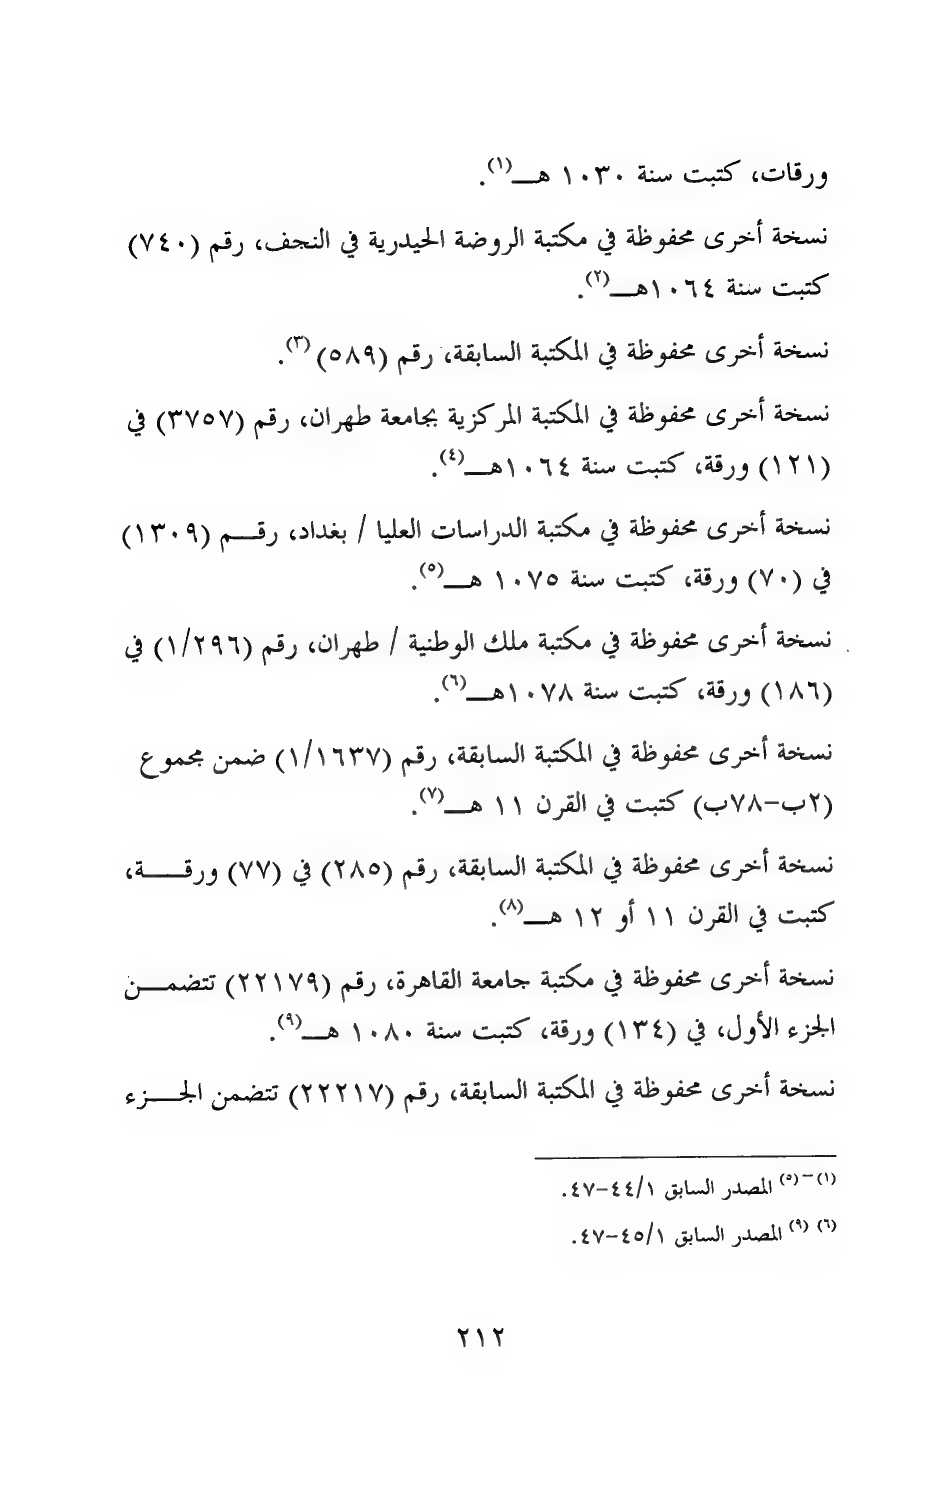 ورقات، كتبت سنة ١٠٣٠ هـــ(١).
نسخة أخرى محفوظة في مكتبة الروضة الحيدرية في النجف، رقم (٧٤٠)
كتبت سنة ١٠٦٤هـــ(٢).
نسخة أخرى محفوظة في المكتبة السابقة، رقم (٥٨٩)(٣).
نسخة أخرى محفوظة في المكتبة المركزية بجامعة طهران، رقم (٣٧٥٧) في
(١٢١) ورقة، كتبت سنة ١٠٦٤هـــ(٤).
نسخة أخرى محفوظة في مكتبة الدراسات العليا / بغداد، رقـــم (١٣٠٩)
في (٧٠) ورقة، كتبت سنة ١٠٧٥ هـــ(٥).
نسخة أخرى محفوظة في مكتبة ملك الوطنية / طهران، رقم (١/٢٩٦) في
(١٨٦) ورقة، كتبت سنة ١٠٧٨هـــ(٦).
نسخة أخرى محفوظة في المكتبة السابقة، رقم (١/١٦٣٧) ضمن مجموع
(٢ب-٧٨ب) كتبت في القرن ١١ هـــ(٧).
نسخة أخرى محفوظة في المكتبة السابقة، رقم (٢٨٥) في (٧٧) ورقــــة،
كتبت في القرن ١١ أو ١٢ هـــ(٨).
نسخة أخرى محفوظة في مكتبة جامعة القاهرة، رقم (٢٢١٧٩) تتضمـــن
الجزء الأول، في (١٣٤) ورقة، كتبت سنة ١٠٨٠ هـــ(٩).
نسخة أخرى محفوظة في المكتبة السابقة، رقم (٢٢٢١٧) تتضمن الجـــزء
(١)-(٥) المصدر السابق ٤٤/١-٤٧.
(٦) (٩) المصدر السابق ٤٥/١-٤٧.
٢١٢